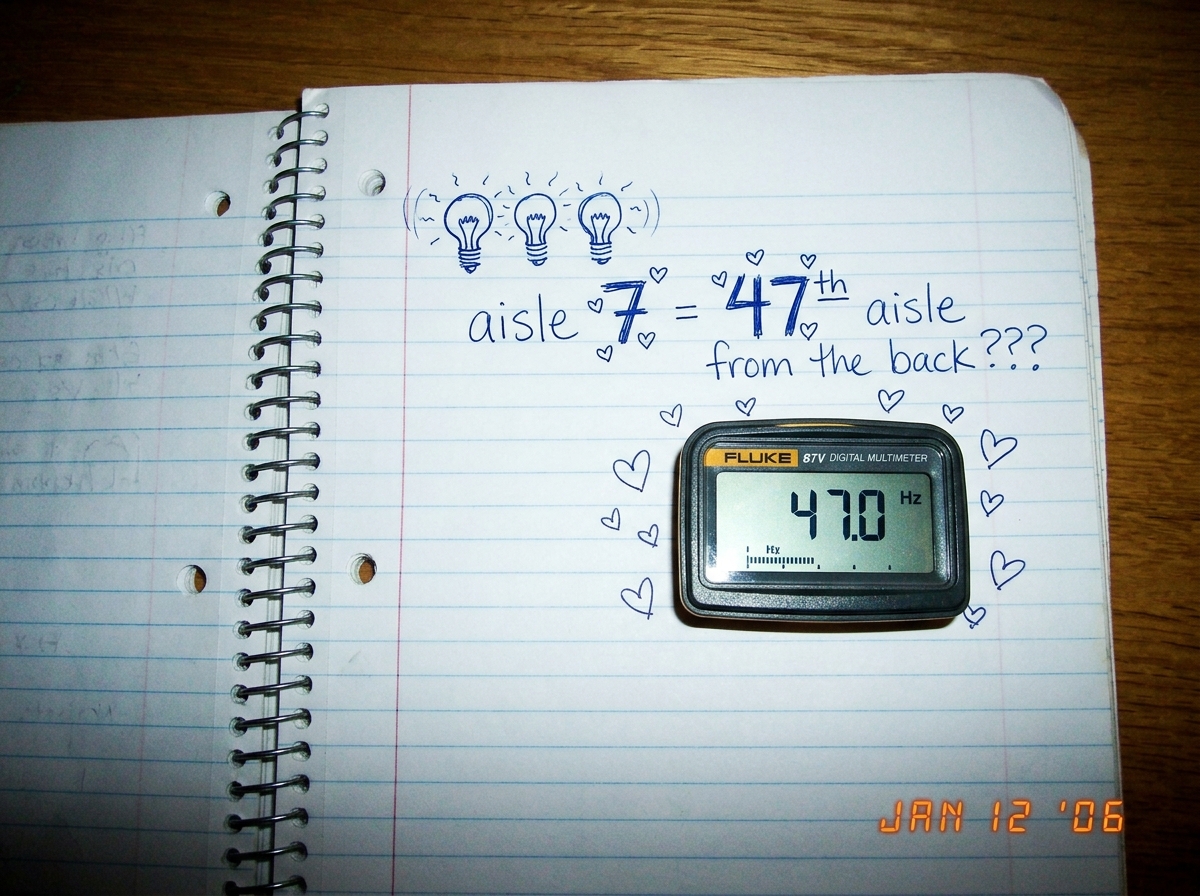 aisle 7 = 47th aisle
from the back???
FLUKE 87V DIGITAL MULTIMETER
47.0 Hz
JAN 12 '06